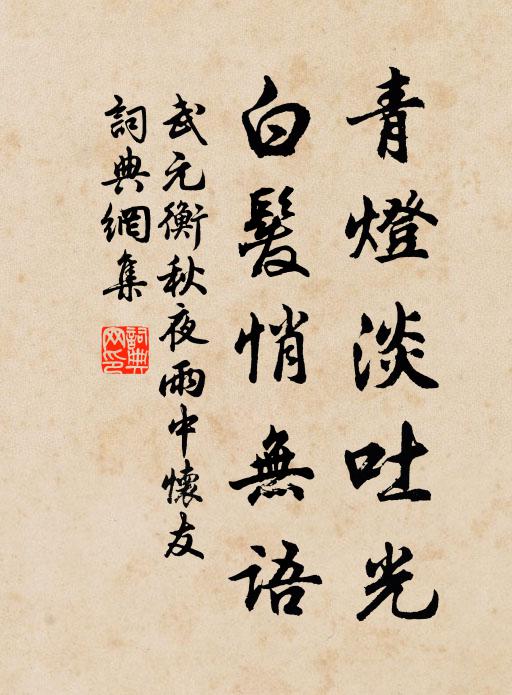 青燈淡吐光
白髮悄無語
武元衡秋夜雨中懷友
詞典網集
詞典網印